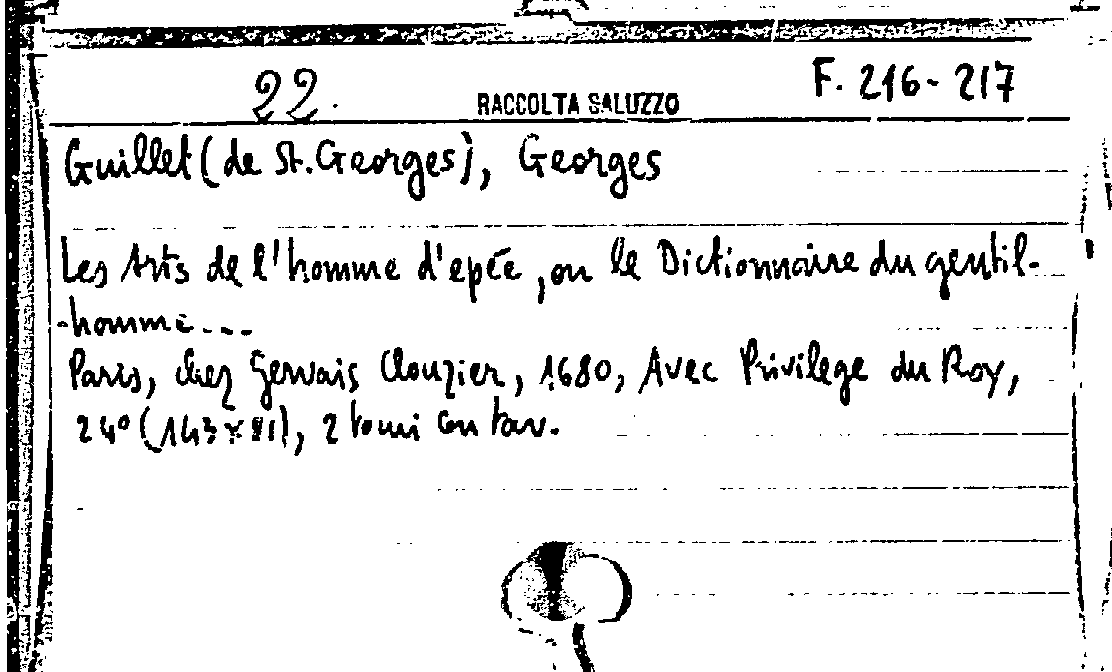 22. RACCOLTA SALUZZO F. 216-217
Guillet (de St. Georges), Georges
Les Arts de l'homme d'epée, ou le Dictionnaire du gentil-
-homme...
Paris, chez Gervais Clouzier, 1680, Avec Privilege du Roy,
24° (143 x 81), 2 tomi con tav.